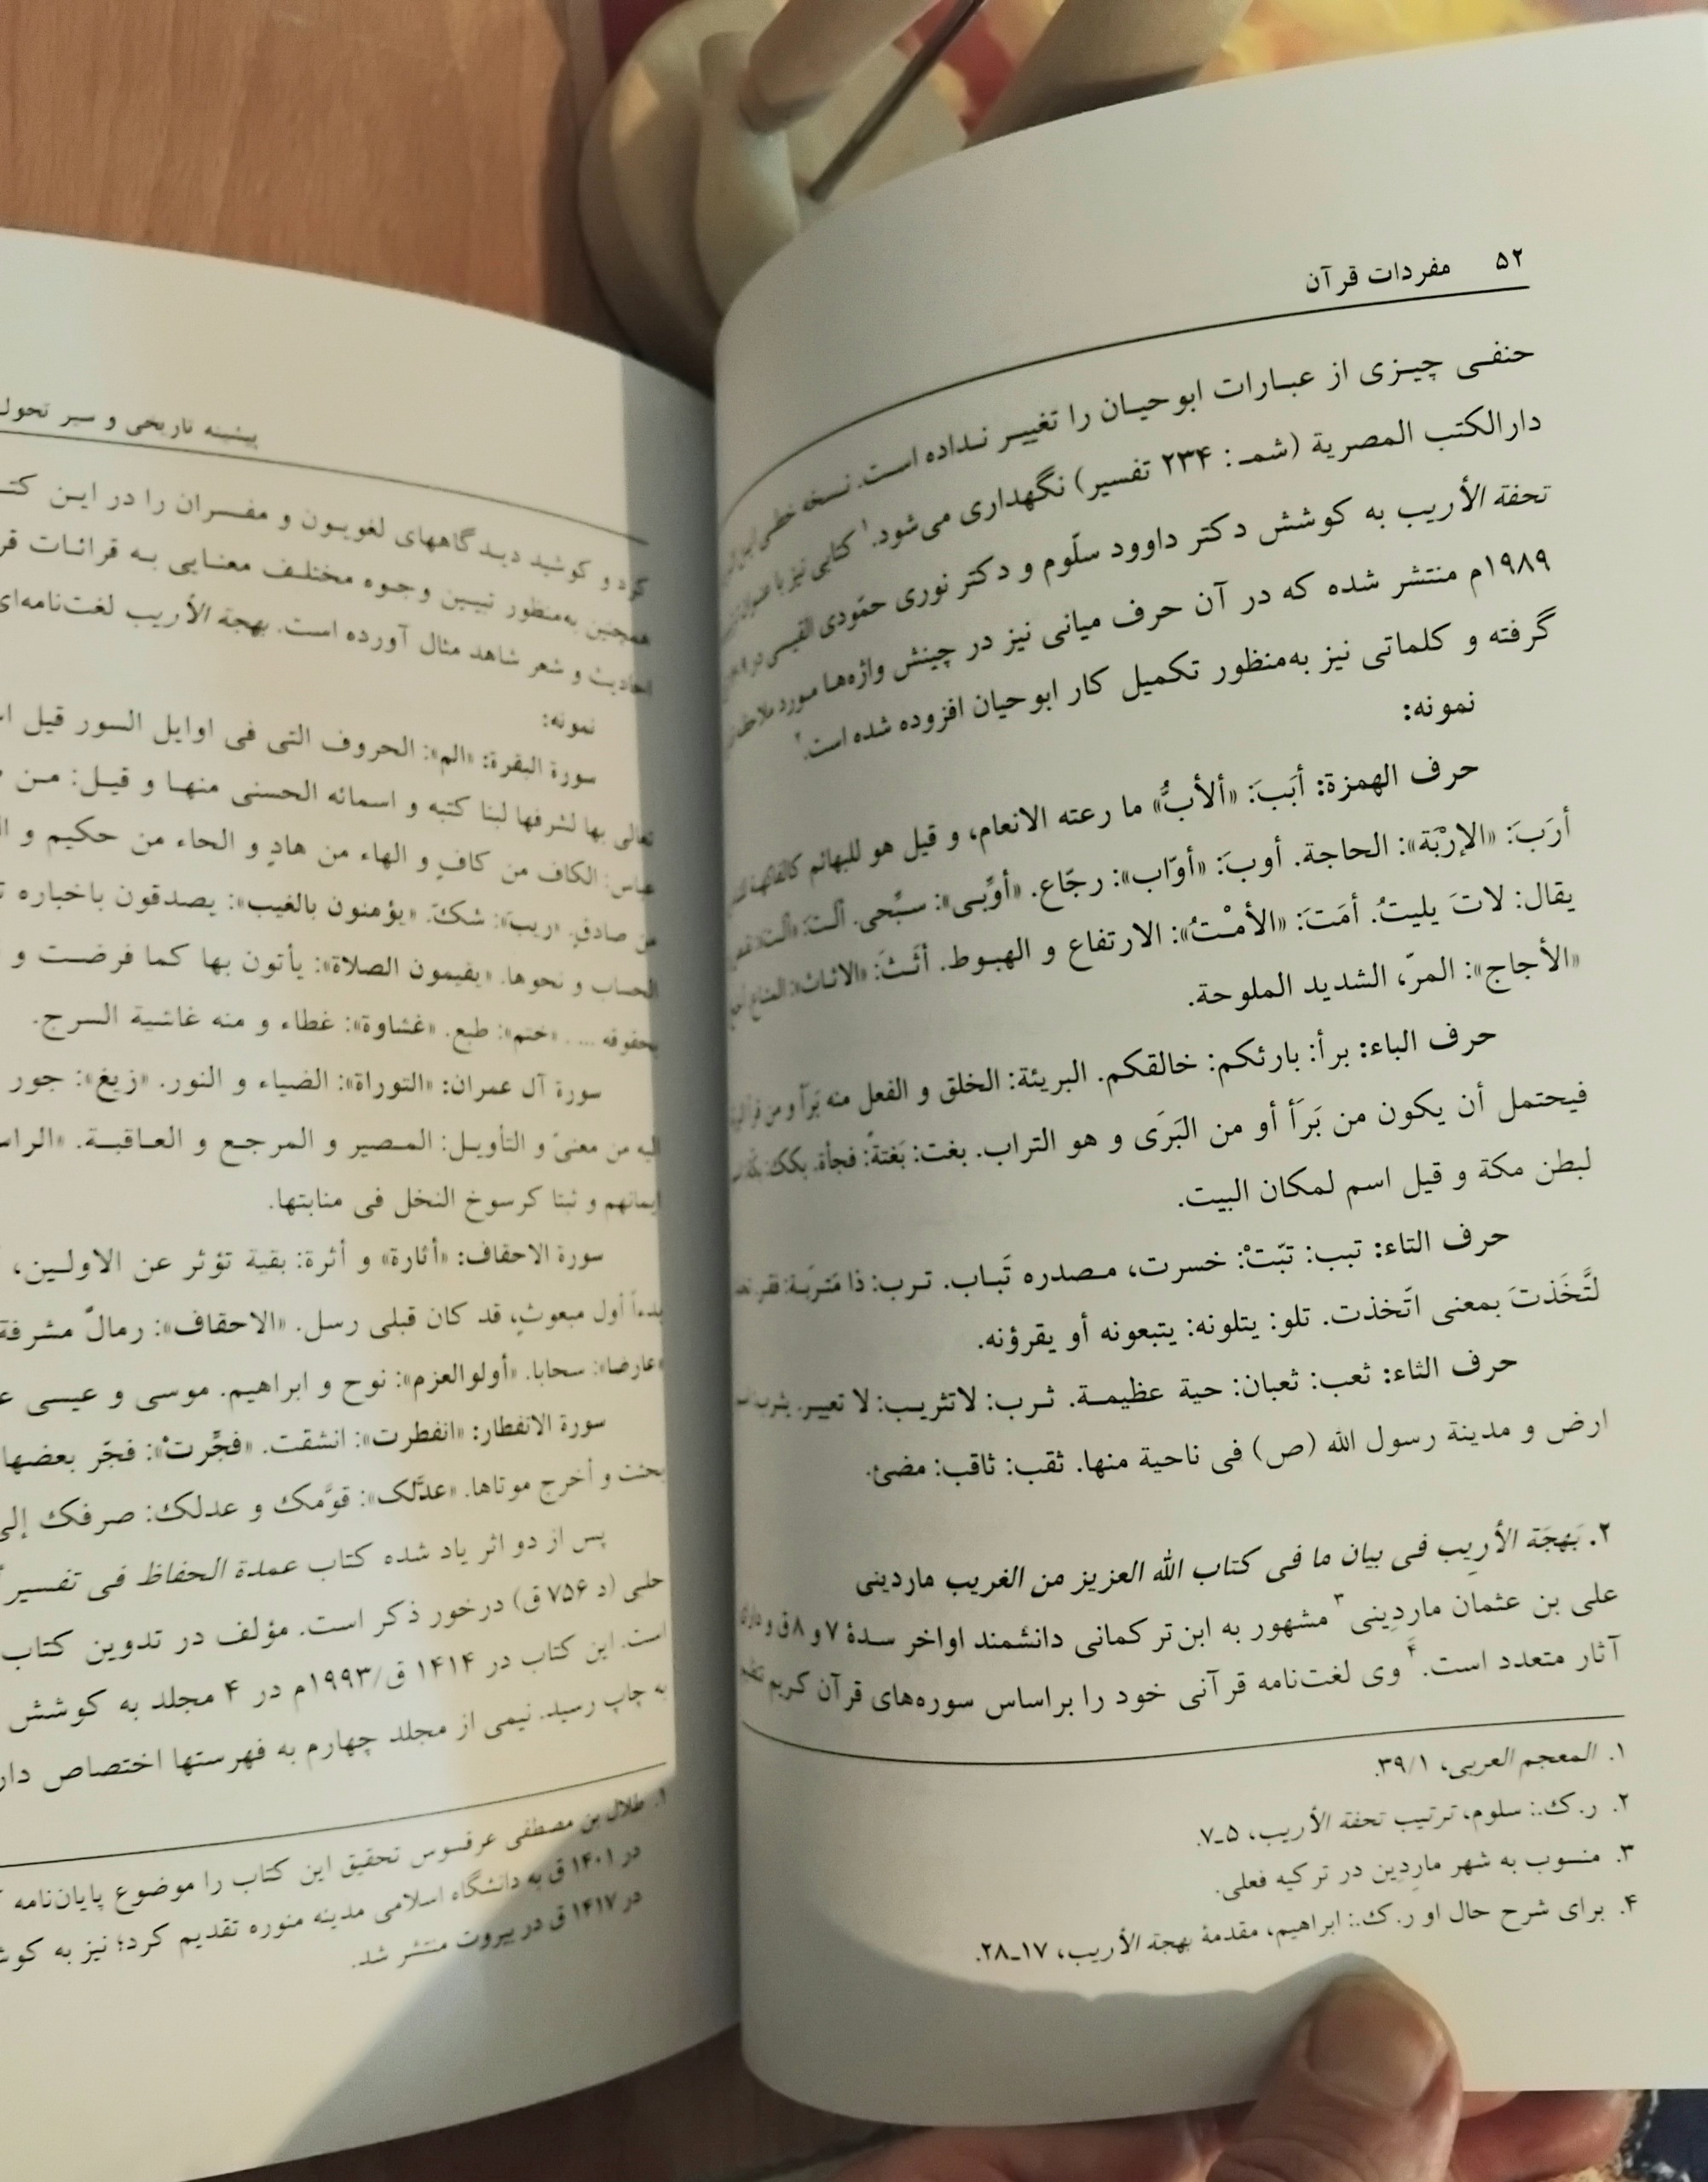 ۵۲ مفردات قرآن
حنفی چیزی از عبارات ابوحیان را تغییر نداده است. نسخه خطی این
دارالکتب المصریة (شمـ : ۲۳۴ تفسیر) نگهداری می‌شود.۱ کتابی نیز با عنوان
تحفة الأریب به کوشش دکتر داوود سلّوم و دکتر نوری حمّودی القیسی در
۱۹۸۹م منتشر شده که در آن حرف میانی نیز در چینش واژه‌ها مورد ملاحظه
گرفته و کلماتی نیز به‌منظور تکمیل کار ابوحیان افزوده شده است.۲
نمونه:
حرف الهمزة: أبَبَ: «ألأبُّ» ما رعته الانعام، و قیل هو للبهائم کالفاکهة
أرَبَ: «الإرْبَة»: الحاجة. أوبَ: «أوّاب»: رجّاع. «أوِّبی»: سبِّحی. ألَتَ:
یقال: لاتَ یلیتُ. أمَتَ: «الأمْتُ»: الارتفاع و الهبوط. أثَثَ: «الاثاث»: المتاع
«الأجاج»: المرّ، الشدید الملوحة.
حرف الباء: برأ: بارئکم: خالقکم. البریئة: الخلق و الفعل منه بَرَأ و من
فیحتمل أن یکون من بَرَأ أو من البَرَی و هو التراب. بغت: بَغتةً: فجأة. بکک:
لبطن مکة و قیل اسم لمکان البیت.
حرف التاء: تبب: تبّتْ: خسرت، مصدره تَباب. ترب: ذا مَتربَة: فقر.
لتَّخَذتَ بمعنی اتّخذت. تلو: یتلونه: یتبعونه أو یقرؤنه.
حرف الثاء: ثعب: ثعبان: حیة عظیمة. ثرب: لاتثریب: لا تعییر. یثرب:
ارض و مدینة رسول الله (ص) فی ناحیة منها. ثقب: ثاقب: مضئ.
۲. بَهجَة الأریِب فی بیان ما فی کتاب الله العزیز من الغریب ماردینی
علی بن عثمان ماردِینی۳ مشهور به ابن‌ترکمانی دانشمند اواخر سدهٔ ۷ و ۸ق و دارای
آثار متعدد است.۴ وی لغت‌نامه قرآنی خود را براساس سوره‌های قرآن کریم تنظیم
۱. المعجم العربی، ۳۹/۱.
۲. ر.ک.: سلوم، ترتیب تحفة الأریب، ۵ـ۷.
۳. منسوب به شهر ماردِین در ترکیه فعلی.
۴. برای شرح حال او ر.ک.: ابراهیم، مقدمهٔ بهجة الأریب، ۱۷ـ۲۸.
پیشینه تاریخی و سیر تحول
کرد و کوشید دیدگاههای لغویون و مفسران را در این
همچنین به‌منظور تبیین وجوه مختلف معنایی به قرائات
احادیث و شعر شاهد مثال آورده است. بهجة الأریب لغت‌نامه‌ای
نمونه:
سورة البقرة: «الم»: الحروف التی فی اوایل السور قیل
تعالی بها لشرفها لبنا کتبه و اسمائه الحسنی منها و قیل: من
عباس: الکاف من کافٍ و الهاء من هادٍ و الحاء من حکیم و
من صادقٍ. «ریبَ»: شکّ. «یؤمنون بالغیب»: یصدقون باخباره
الحساب و نحوها. «یقیمون الصلاة»: یأتون بها کما فرضت و
بحقوقه .... «ختم»: طبع. «غشاوة»: غطاء و منه غاشیة السرج.
سورة آل عمران: «التوراة»: الضیاء و النور. «زیغ»: جور
الیه من معنیً و التأویل: المصیر و المرجع و العاقبة.
ایمانهم و ثبتا کرسوخ النخل فی منابتها.
سورة الاحقاف: «أثارة» و أثرة: بقیة تؤثر عن الاولین،
بدءاً أول مبعوثٍ، قد کان قبلی رسل. «الاحقاف»: رمالٌ مشرفة
«عارضا»: سحابا. «أولوالعزم»: نوح و ابراهیم. موسی و عیسی
سورة الانفطار: «انفطرت»: انشقت. «فجِّرتْ»: فجّر بعضها
بحثت و أخرج موتاها. «عدَّلک»: قوَّمک و عدلک: صرفک إلی
پس از دو اثر یاد شده کتاب عمدة الحفاظ فی تفسیر
حلبی (د ۷۵۶ ق) درخور ذکر است. مؤلف در تدوین کتاب
است. این کتاب در ۱۴۱۴ ق/۱۹۹۳م در ۴ مجلد به کوشش
به چاپ رسید. نیمی از مجلد چهارم به فهرستها اختصاص
۱. طلال بن مصطفی عرقسوس تحقیق این کتاب را موضوع پایان‌نامه
در ۱۴۰۱ ق به دانشگاه اسلامی مدینه منوره تقدیم کرد؛ نیز به
در ۱۴۱۷ ق در بیروت منتشر شد.